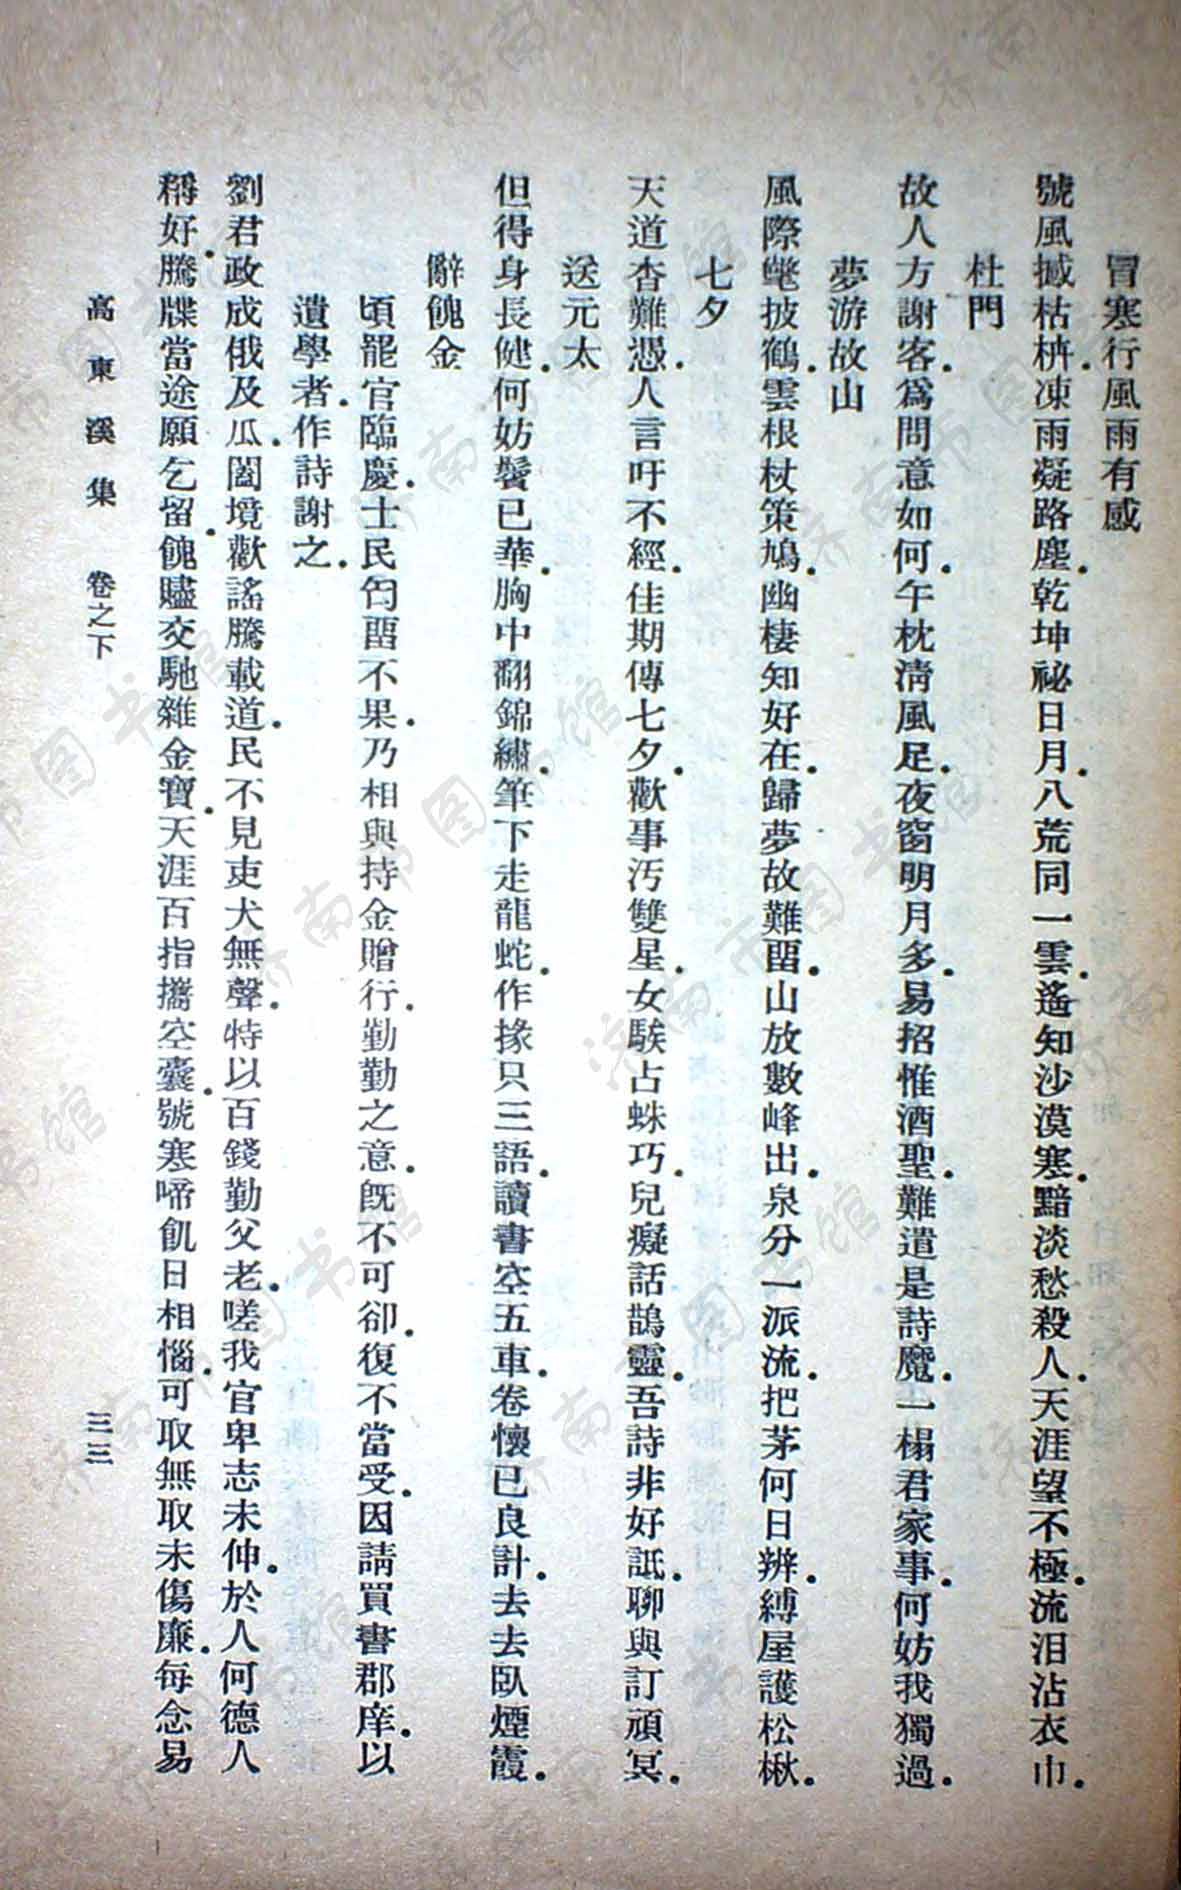 冒寒行風雨有感
號風撼枯枿凍雨凝路塵乾坤祕日月八荒同一雲遙知沙漠寒黯淡愁殺人天涯望不極流泪沾衣巾
杜門
故人方謝客爲問意如何午枕清風足夜窗明月多易招惟酒聖難遣是詩魔一榻君家事何妨我獨過
夢游故山
風際氅披鶴雲根杖策鳩幽棲知好在歸夢故難留山放數峰出泉分一派流把茅何日辨縛屋護松楸
七夕
天道杳難憑人言吁不經佳期傳七夕歡事汚雙星女騃占蛛巧兒癡話鵲靈吾詩非好詆聊與訂頑冥
送元太
但得身長健何妨鬢已華胸中翻錦繡筆下走龍蛇作掾只三語讀書空五車卷懷已良計去去臥煙霞
辭餽金
頃罷官臨慶士民匄留不果乃相與持金贈行勤勤之意既不可卻復不當受因請買書郡庠以
遺學者作詩謝之
劉君政成俄及瓜闔境歡謠騰載道民不見吏犬無聲特以百錢勤父老嗟我官卑志未伸於人何德人
稱好騰牒當途願乞留餽贐交馳雜金寶天涯百指攜空囊號寒啼飢日相惱可取無取未傷廉每念易
高東溪集 卷之下 三三